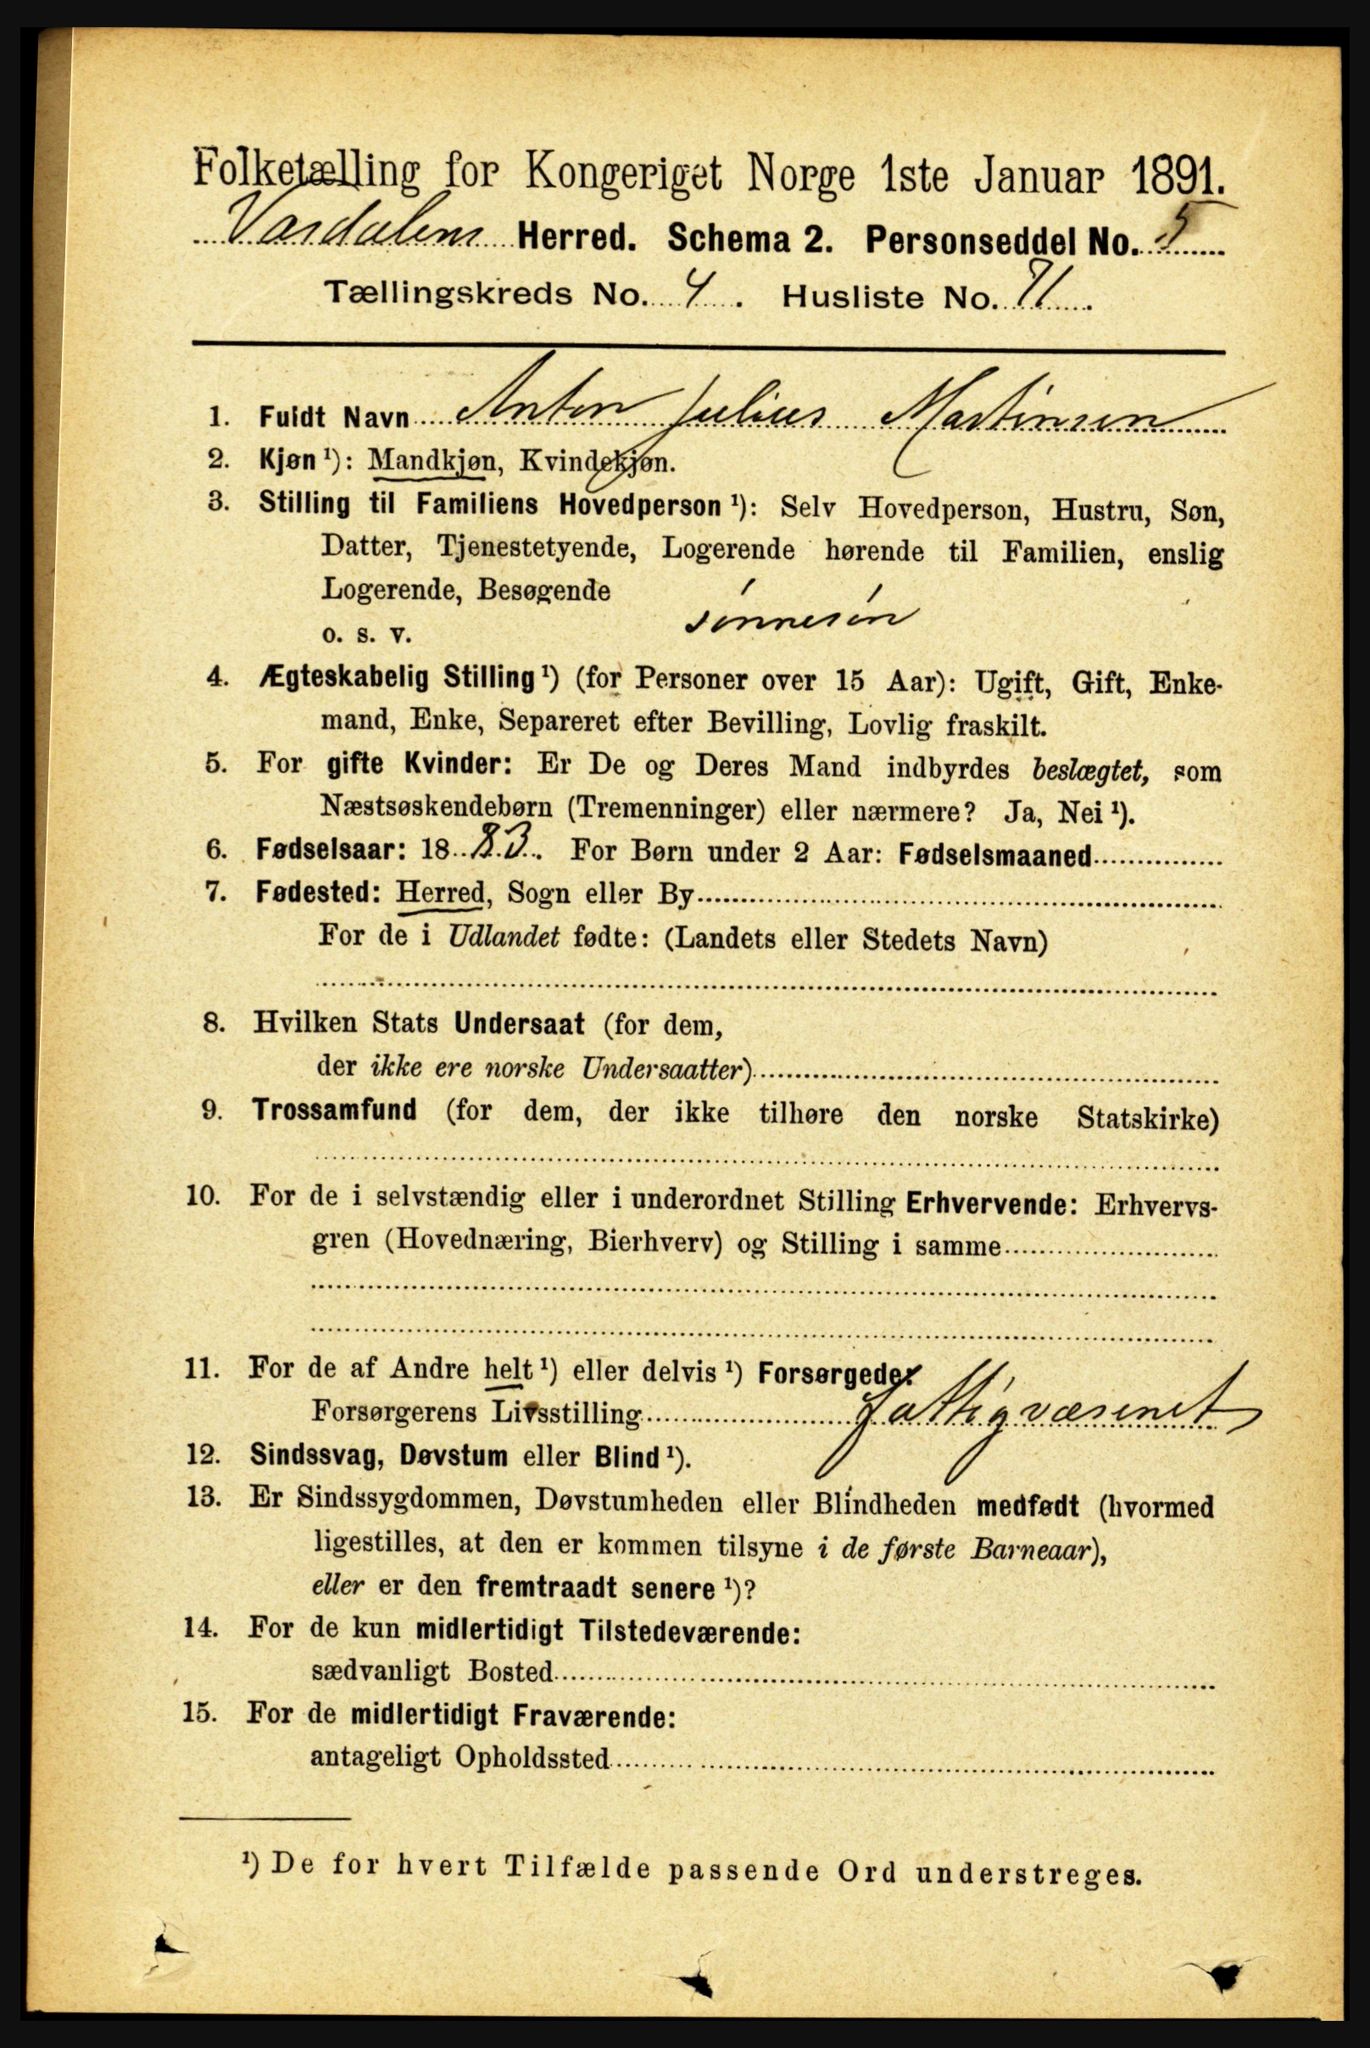 Folketælling for Kongeriget Norge 1ste Januar 1891.
Vardalens Herred. Schema 2. Personseddel No. 5
Tællingskreds No. 4. Husliste No. 71.
1. Fuldt Navn Anton Julius Martinsen
2. Kjøn ¹): Mandkjøn, Kvindekjøn.
3. Stilling til Familiens Hovedperson ¹): Selv Hovedperson, Hustru, Søn,
Datter, Tjenestetyende, Logerende hørende til Familien, enslig
Logerende, Besøgende
o. s. v. sønnesøn
4. Ægteskabelig Stilling ¹) (for Personer over 15 Aar): Ugift, Gift, Enke-
mand, Enke, Separeret efter Bevilling, Lovlig fraskilt.
5. For gifte Kvinder: Er De og Deres Mand indbyrdes beslægtet, som
Næstsøskendebørn (Tremenninger) eller nærmere? Ja, Nei ¹).
6. Fødselsaar: 1883. For Børn under 2 Aar: Fødselsmaaned
7. Fødested: Herred, Sogn eller By
For de i Udlandet fødte: (Landets eller Stedets Navn)
8. Hvilken Stats Undersaat (for dem,
der ikke ere norske Undersaatter)
9. Trossamfund (for dem, der ikke tilhøre den norske Statskirke)
10. For de i selvstændig eller i underordnet Stilling Erhvervende: Erhvervs-
gren (Hovednæring, Bierhverv) og Stilling i samme
11. For de af Andre helt ¹) eller delvis ¹) Forsørgede:
Forsørgerens Livsstilling Fattigvæsenet
12. Sindssvag, Døvstum eller Blind ¹).
13. Er Sindssygdommen, Døvstumheden eller Blindheden medfødt (hvormed
ligestilles, at den er kommen tilsyne i de første Barneaar),
eller er den fremtraadt senere ¹)?
14. For de kun midlertidigt Tilstedeværende:
sædvanligt Bosted
15. For de midlertidigt Fraværende:
antageligt Opholdssted
¹) De for hvert Tilfælde passende Ord understreges.